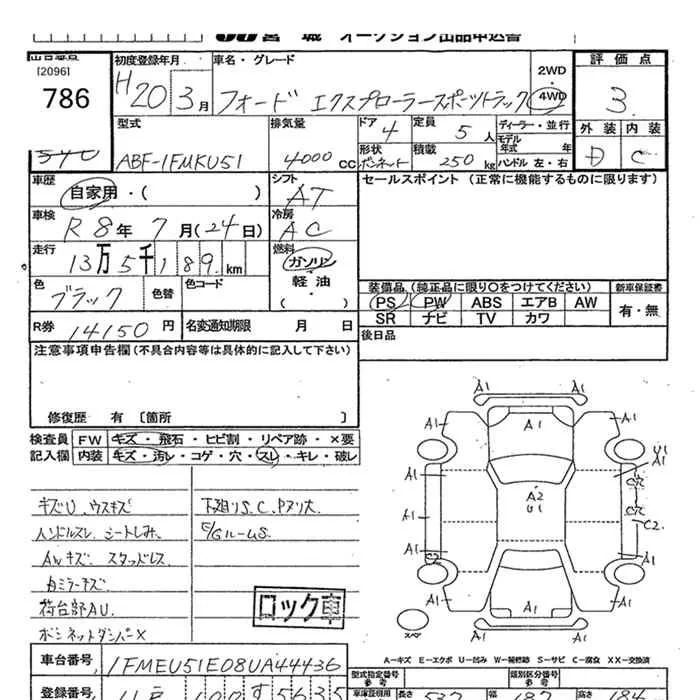 JU 宮城 オークション出品申込書
出品番号
[2096]
786
初度登録年月
H20 3月
車名・グレード
フォード エクスプローラースポーツトラック
2WD
・
4WD
評価点
3
外装 内装
D C
型式
ABF-1FMKU51
排気量
4000 CC
ドア
4
定員
5 人
ディーラー・並行
モデル年式 年
形状
ボンネット
積載
250 kg
ハンドル 左・右
車歴
自家用・( )
シフト
AT
セールスポイント (正常に機能するものに限ります)
車検
R8年 7月(24日)
冷房
AC
走行
13万5千189km
燃料
ガソリン
軽油
( )
色
ブラック
色替
色コード
装備品 (純正品に限り○をつけてください)
PS PW ABS エアB AW
SR ナビ TV カワ
新車保証書
有・無
R券 14150円
名変通知期限 月 日
後日品
注意事項申告欄(不具合内容等は具体的に記入して下さい)
修復歴 有 〔箇所 〕
検査員記入欄
FW キズ・飛石・ヒビ割・リペア跡・×要
内装 キズ・汚レ・コゲ・穴・スレ・キレ・破レ
キズU ウスキズ
ハンドルスレ シートしみ
AWキズ スタッドレス
白ミラーキズ
荷台部AU
ボンネットダンパーX
下廻りS.C.
E/GルームS.
ロック車
A1 A1
A1 A1 A1
U1
A1
A1 A1
A2
U1
A1
C2
A1 A1
C2
A1 A1
A1 A1
スペア
A-キズ E-エクボ U-凹み W-補修跡 S-サビ C-腐食 XX-交換済
車台番号
1FMEU51E08UA44436
登録番号
型式指定番号
参考
類別区分番号
参考
長さ 532 幅 187 高さ 184